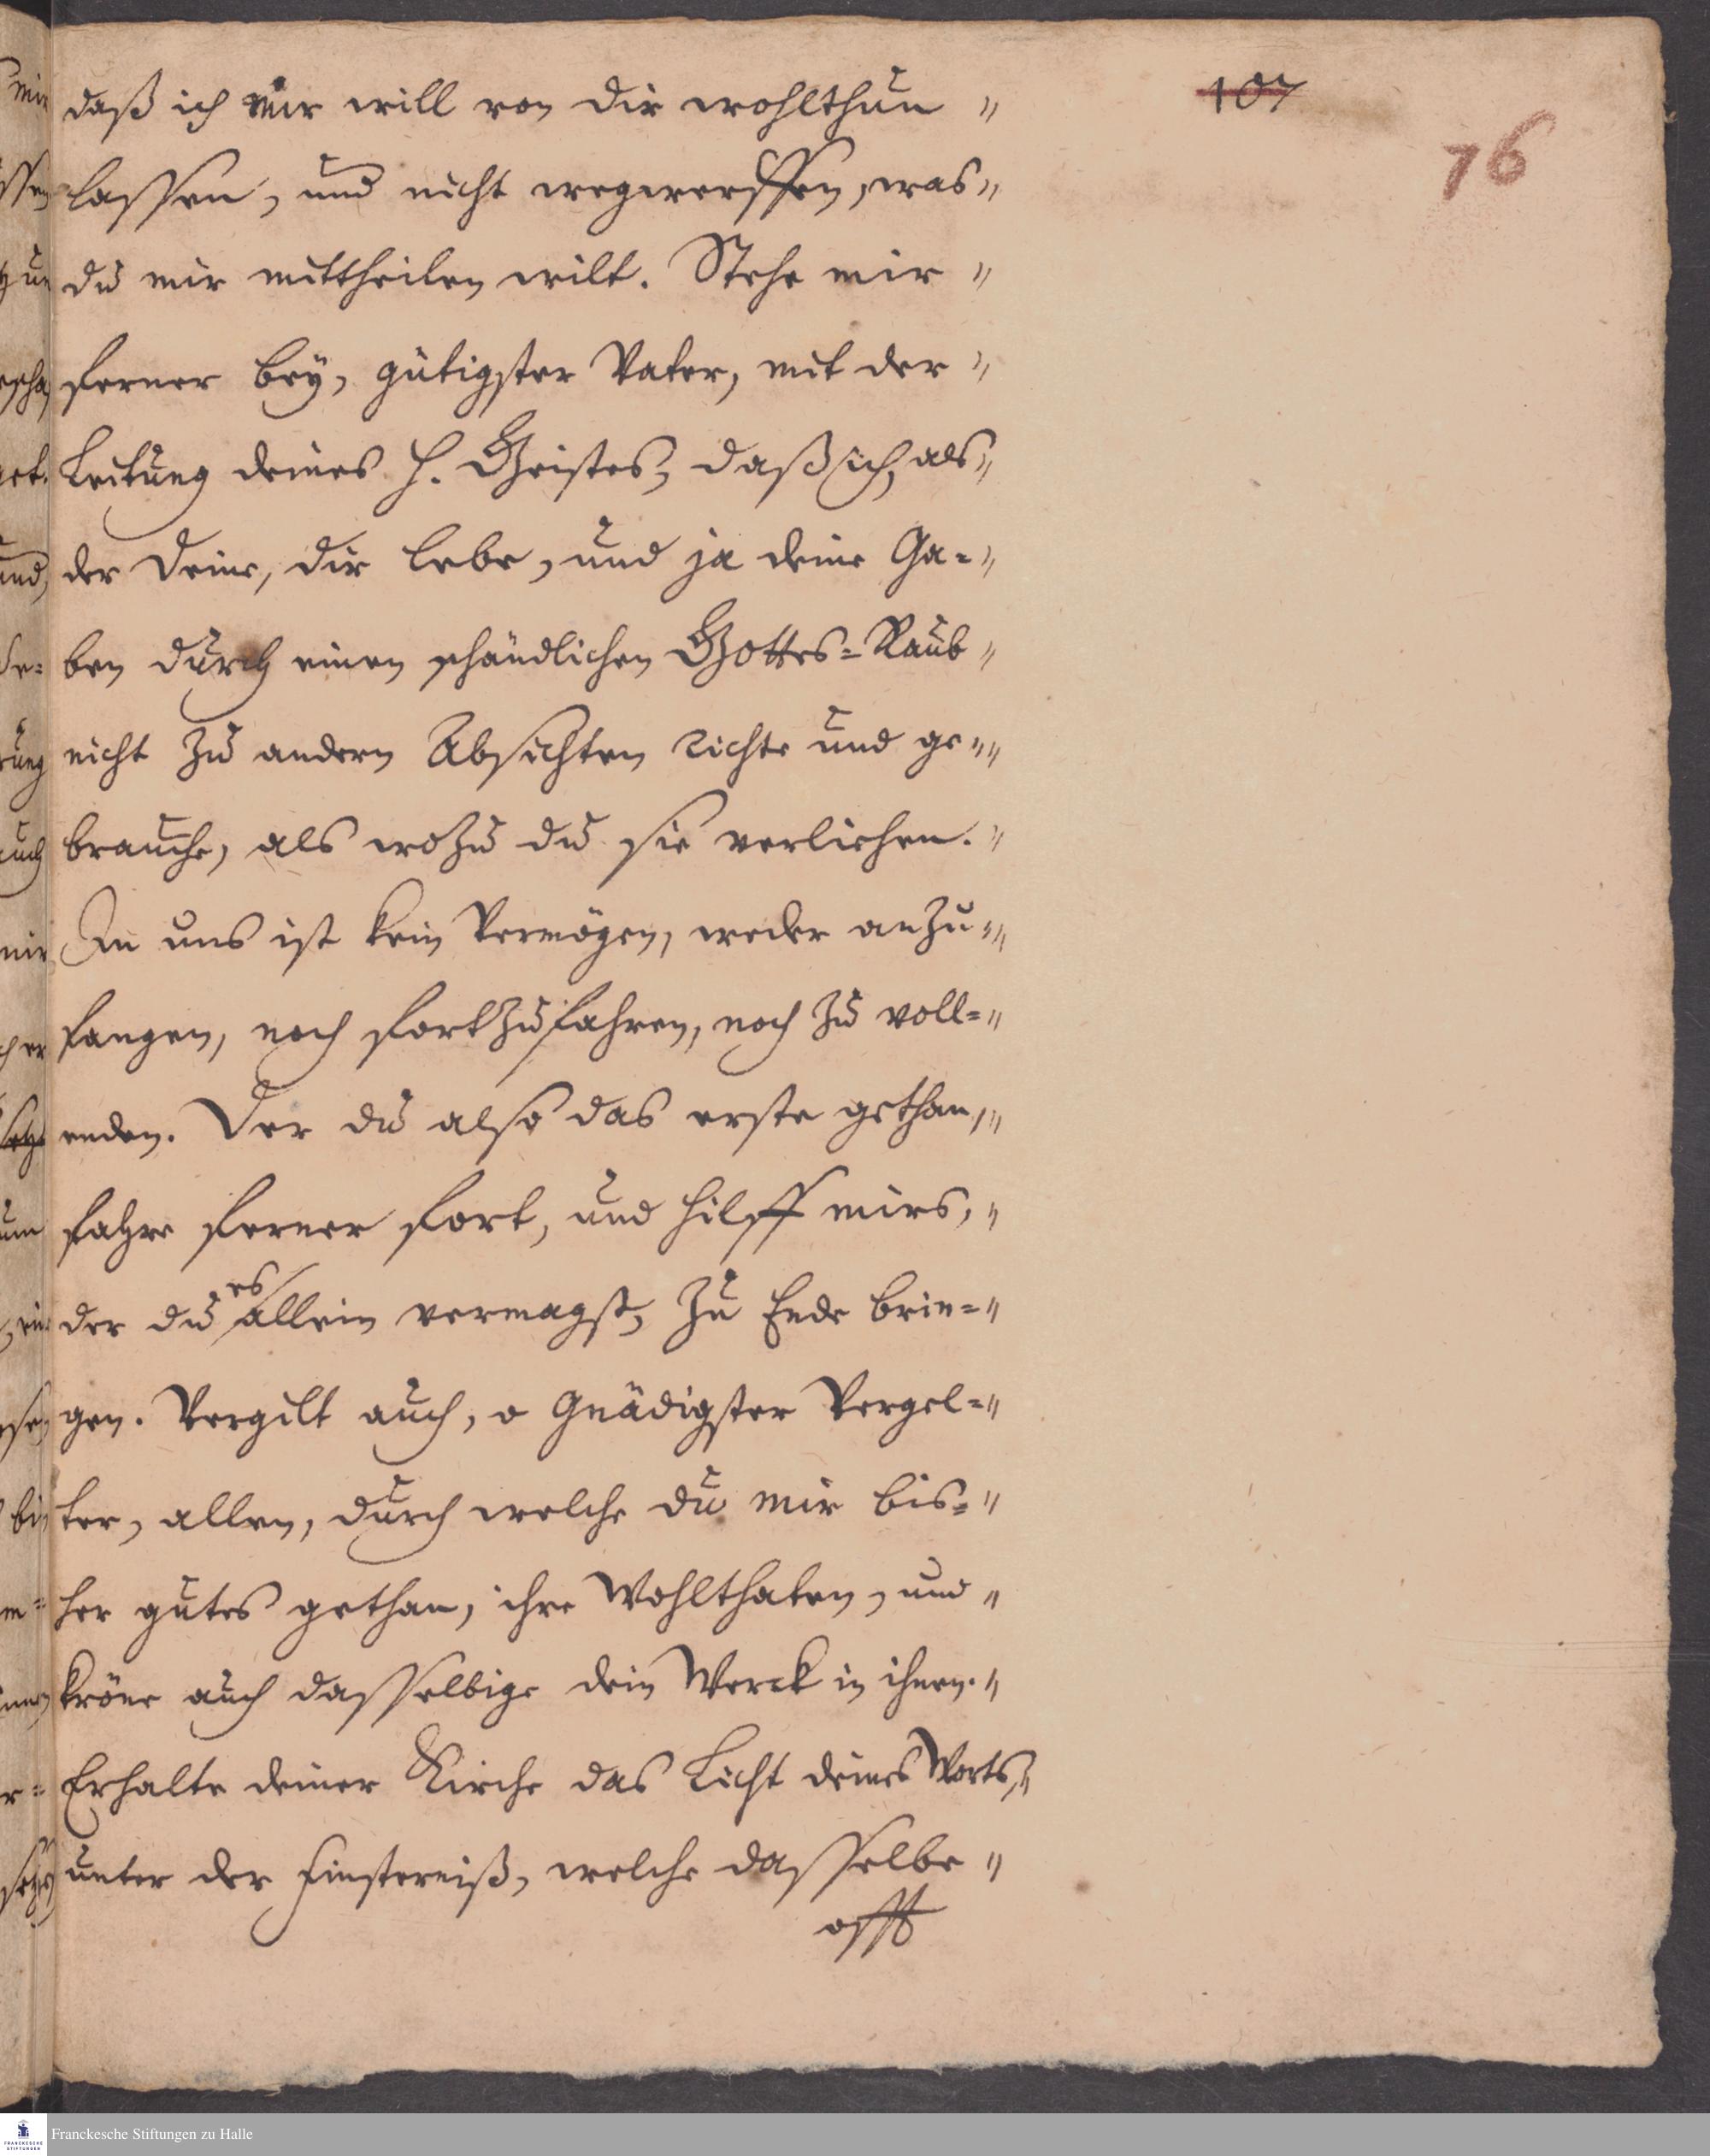 107
76
daß ich mir will von dir wohlthun "
lassen, und nicht wegwerffen, was "
du mir mittheilen wilt. Stehe mir "
ferner beÿ, gütigster Vater, mit der "
Leitung deines H. Geistes, daß ich, als "
der Deine, dir lebe, und ja deine Ga= "
ben durch einen schändlichen Gottes=Raub "
nicht zu andern Absichten richte und ge= "
brauche, als wozu du sie verliehen. "
In uns ist kein Vermögen, weder anzu= "
fangen, noch fortzufahren, noch zu voll= "
enden. Der du also das erste gethan, "
fahre ferner fort, und hilff mirs, "
der du es allein vermagst, zu Ende brin= "
gen. Vergilt auch, o Gnädigster Vergel= "
ter, allen, durch welche du mir bis= "
her gutes gethan, ihre Wohlthaten, und "
kröne auch dasselbige dein Werck in ihnen. "
Erhalte deiner Kirche das Licht deines Worts, "
unter der Finsterniß, welche dasselbe "
offt
Franckesche Stiftungen zu Halle